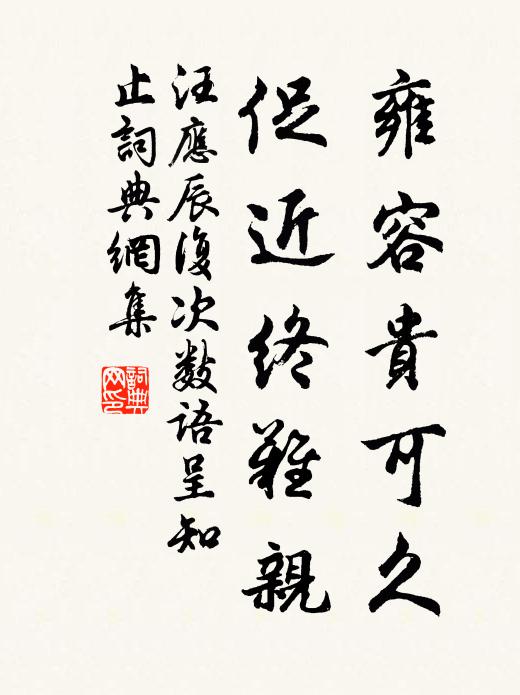 雍容貴可久
促近終難親
汪應辰復次數語呈知
止詞典網集
詞典
网印